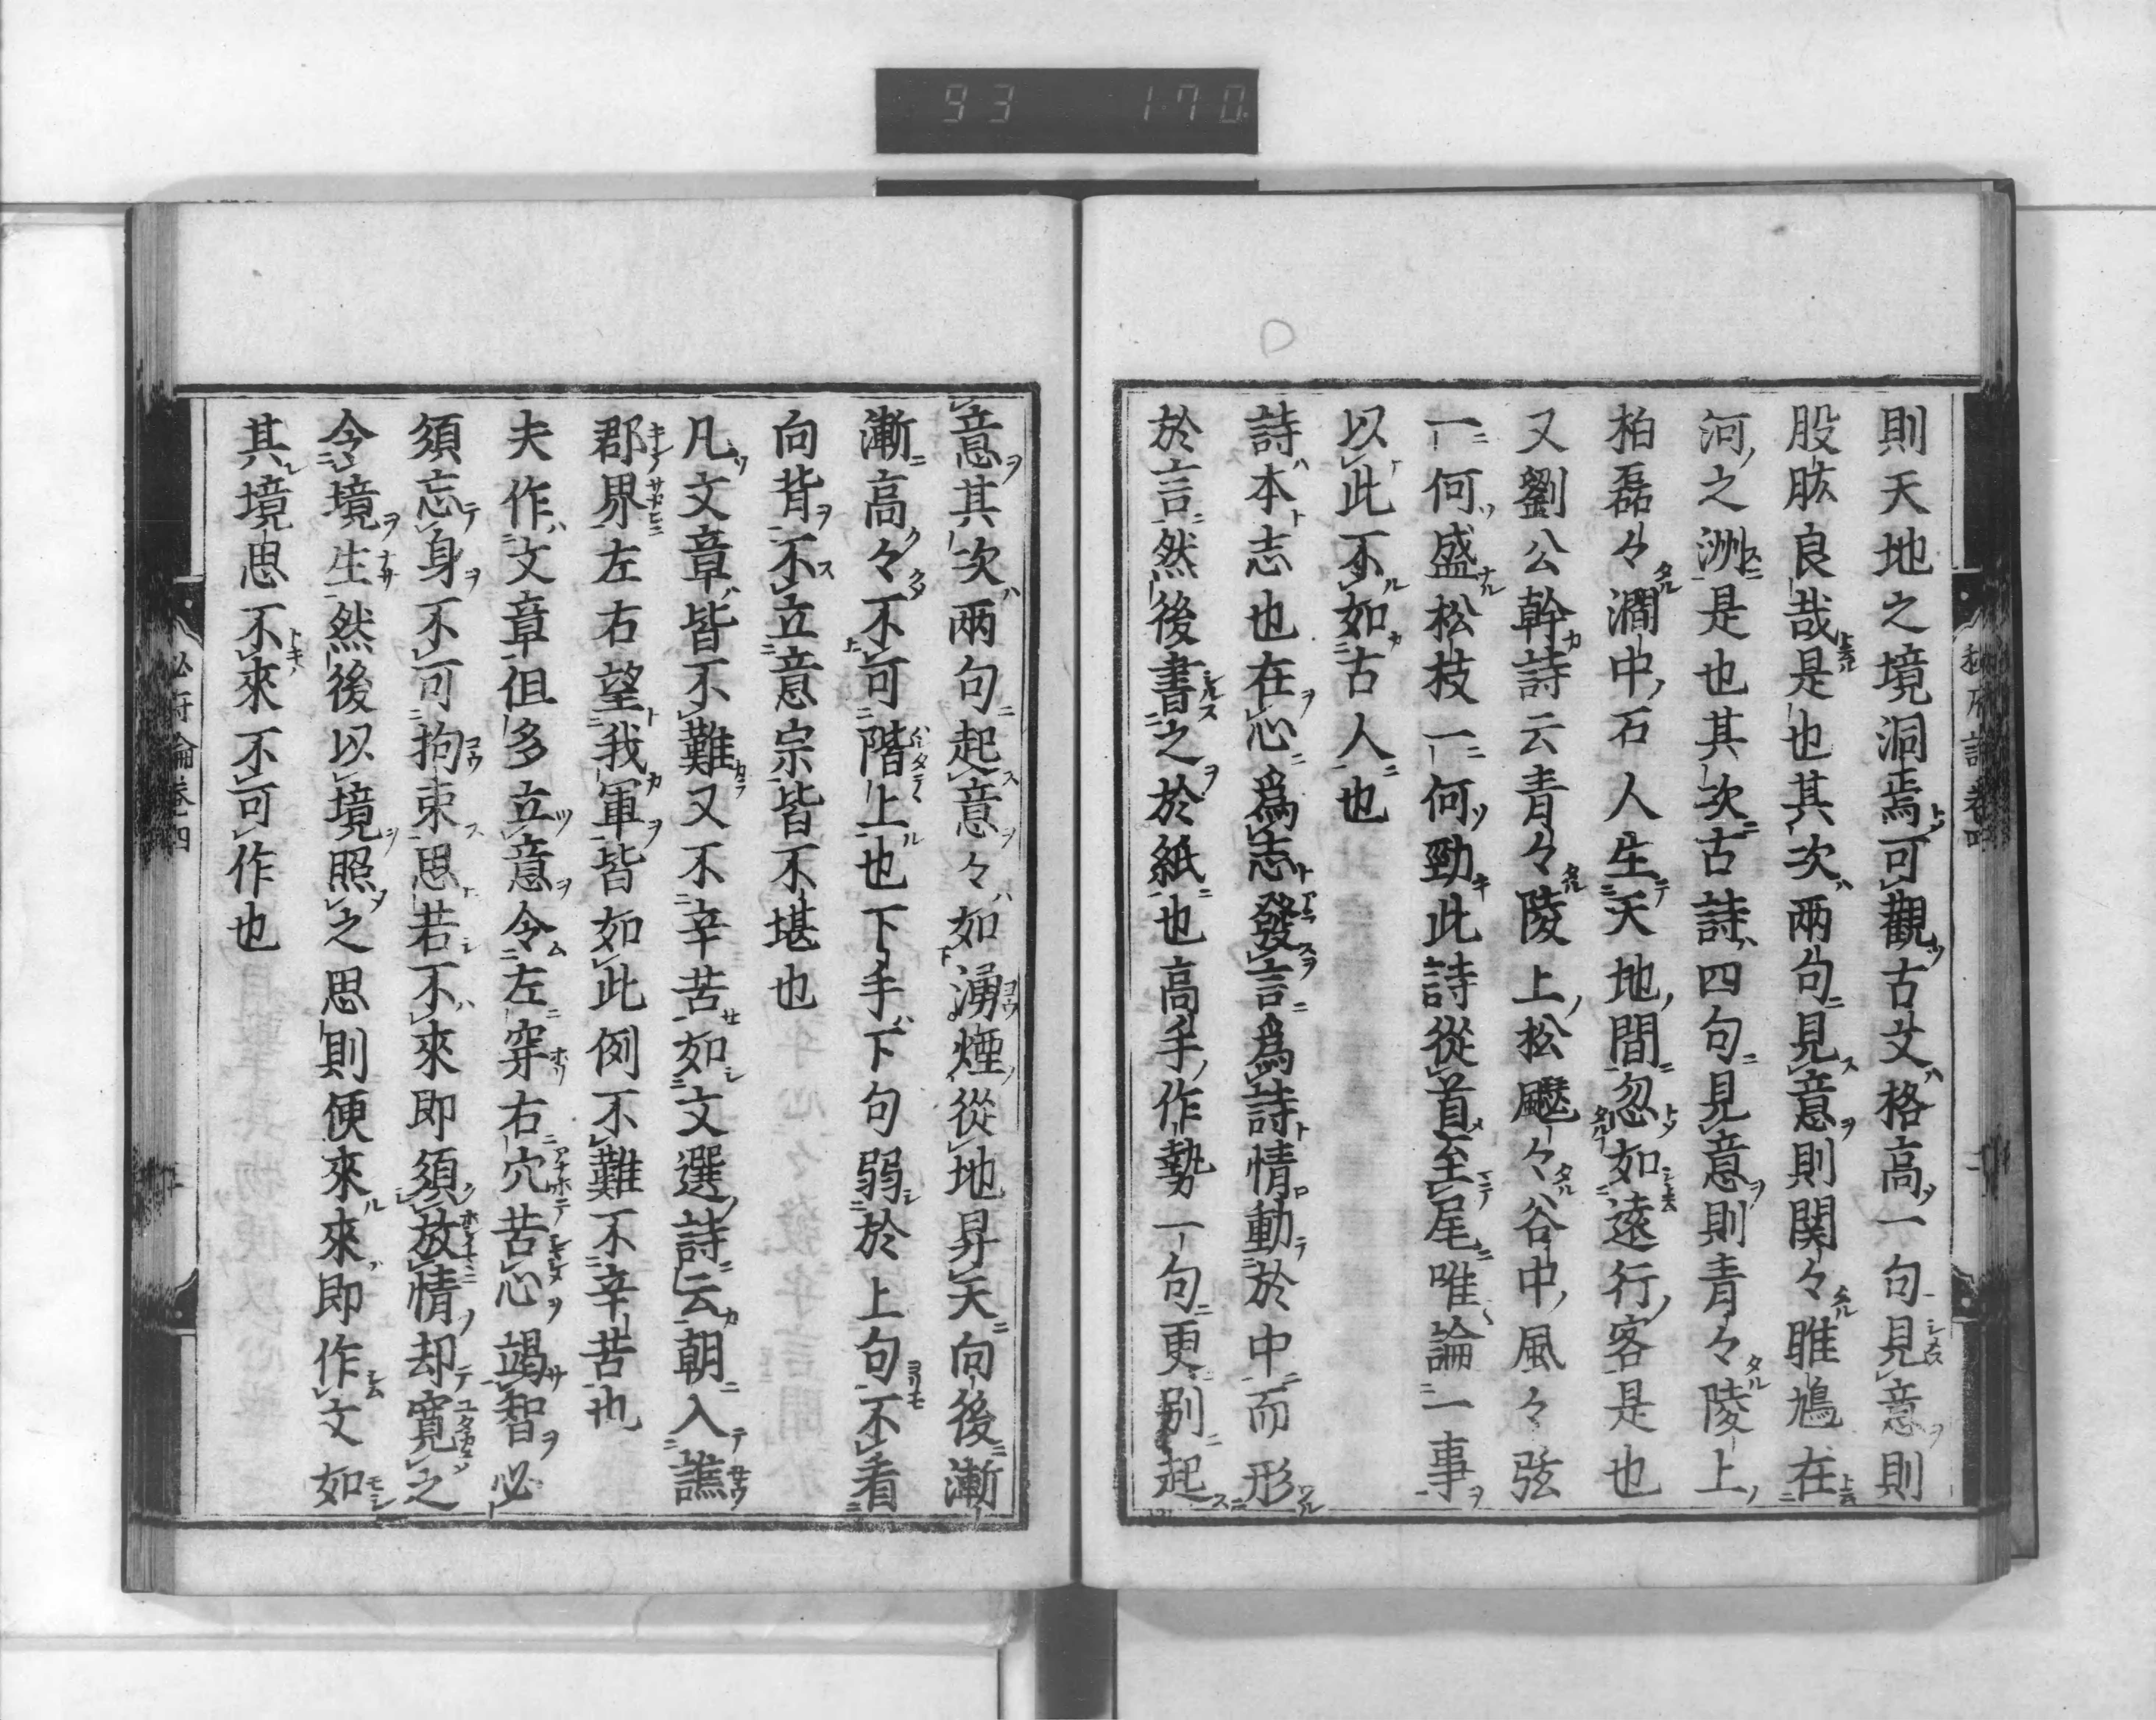 93 170
則天地之境洞焉可觀古文格高一句見意則
股肱良哉是也其次兩句見意則関々雎鳩在
河之洲是也其次古詩四句見意則青々陵上
柏磊々澗中石人生天地間忽如遠行客是也
又劉公幹詩云青々陵上松飋々谷中風々弦
一何盛松枝一何勁此詩從首至尾唯論一事
以此不如古人也
詩本志也在心為志發言為詩情動於中而形
於言然後書之於紙也高手作勢一句更別起
意其次兩句起意々如湧煙從地昇天向後漸
漸高々不可階上也下手下句弱於上句不看
向背不立意宗皆不堪也
凡文章皆不難又不辛苦如文選詩云朝入譙
郡界左右望我軍皆如此例不難不辛苦也
夫作文章但多立意令左穿右穴苦心竭智必
須忘身不可拘束思若不來即須放情却寛之
令境生然後以境照之思則便來來即作文如
其境思不來不可作也